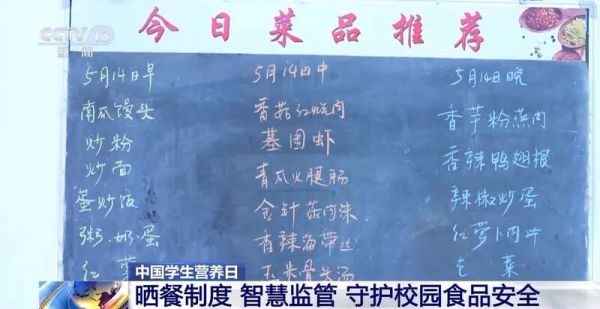 CCTV 13
新闻
今日菜品推荐
5月14日早
南瓜馒头
炒粉
炒面
蛋炒饭
粥.奶.蛋
红
5月14日中
香菇红烧肉
基围虾
青瓜火腿肠
金针菇肉沫
香辣海带丝
玉米骨头汤
5月14日晚
香芋粉蒸肉
香辣鸭翅根
辣椒炒蛋
红萝卜肉片
菜
中国学生营养日
晒餐制度 智慧监管 守护校园食品安全